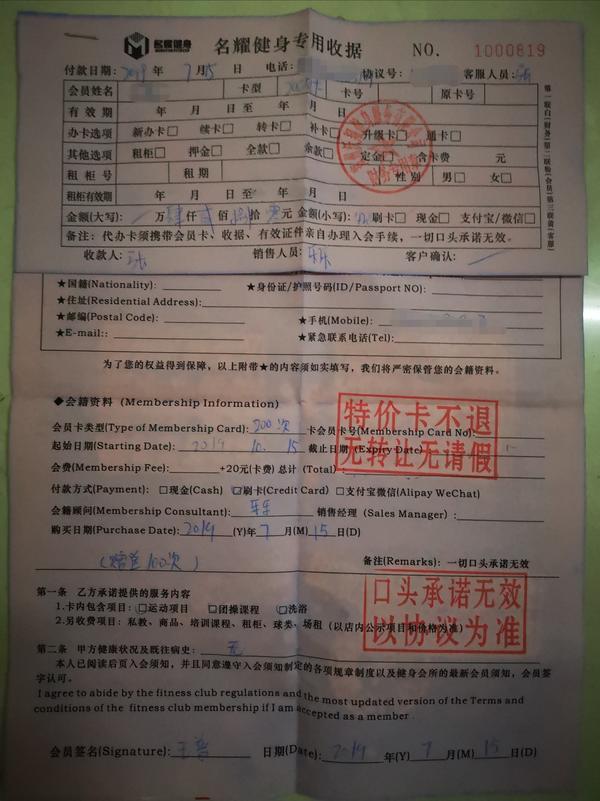 名耀健身 名耀健身专用收据 NO. 1000819
付款日期: 2019 年 7 月 15 日 电话: 协议号: 客服人员:
会员姓名 卡型 卡号 原卡号
有效期 年 月 日至 年 月 日
办卡选项 新办卡□ 续卡□ 转卡□ 补卡□ 升级卡□ 通卡□
其他选项 租柜□ 押金□ 全款□ 余款□ 定金□ 含卡费 元
租柜号 租期 性别 男□ 女□
租柜有效期 年 月 日至 年 月 日
金额(大写) 万 肆 仟 贰 佰 拾 元 金额(小写): 刷卡□ 现金□ 支付宝/微信□
备注: 代办卡须携带会员卡、收据、有效证件亲自办理入会手续,一切口头承诺无效。
收款人: 销售人员: 客户确认:
第一联白(财务)第二联粉(会员)第三联黄(客服)
★国籍(Nationality): ★身份证/护照号码(ID/Passport NO):
★住址(Residential Address):
★邮编(Postal Code): ★手机(Mobile):
★E-mail:: ★紧急联系电话(Tel):
为了您的权益得到保障,以上附带★的内容须如实填写,我们将严密保管您的会籍资料。
◆会籍资料 (Membership Information)
会员卡类型(Type of Membership Card): 200次 卡会员卡号(Membership Card No):
起始日期(Starting Date): 2019 10. 15 截止日期(Expiry Date)
特价卡不退
无转让无请假
会费(Membership Fee): +20元(卡费) 总计 (Total)
付款方式(Payment): □现金(Cash) ☑刷卡(Credit Card) □支付宝微信(Alipay WeChat)
会籍顾问(Membership Consultant): 销售经理 (Sales Manager):
购买日期(Purchase Date): 2019 (Y)年 7 (M)月 15 (D)日
(赠送100次) 备注(Remarks): 一切口头承诺无效
第一条 乙方承诺提供的服务内容
1.卡内包含项目: ☑运动项目 ☑团操课程 □洗浴
2.另收费项目: 私教、商品、培训课程、租柜、球类、场租 (以店内公示项目和价格为准)
口头承诺无效
以协议为准
第二条 甲方健康状况及既往病史: 无
本人已阅读后页入会须知,并且同意遵守入会须知制定的各项规章制度以及健身会所的最新会员须知,会员签
字认可。
I agree to abide by the fitness club regulations and the most updated version of the Terms and
conditions of the fitness club membership if I am accepted as a member.
会员签名(Signature): 日期(Date): 2019 年(Y) 7 月(M) 15 日(D)